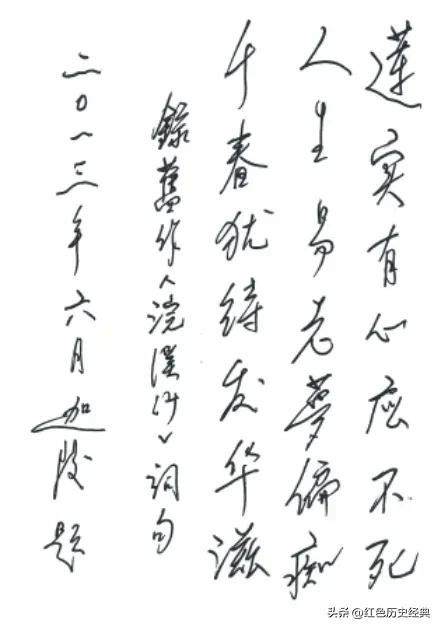 莲实有心应不死
人生易老梦偏痴
千春犹待发华滋
錄舊作《浣溪沙》词句
二〇一三年六月迦陵题
头条 @红色历史经典